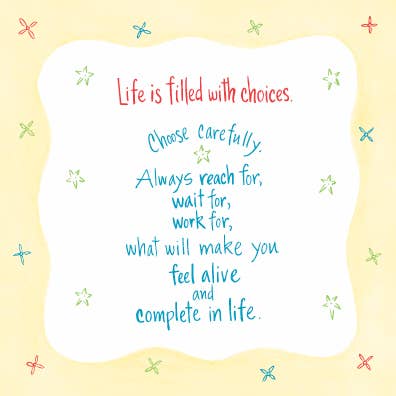 Life is filled with choices.
Choose carefully.
Always reach for,
wait for,
work for,
what will make you
feel alive
and
complete in life.